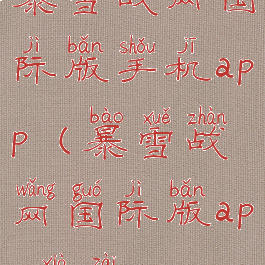 暴雪战网国
jì bǎn shǒu jī
际版手机ap
bào xuě zhàn
p(暴雪战
wǎng guó jì bǎn
网国际版ap
xià zǎi